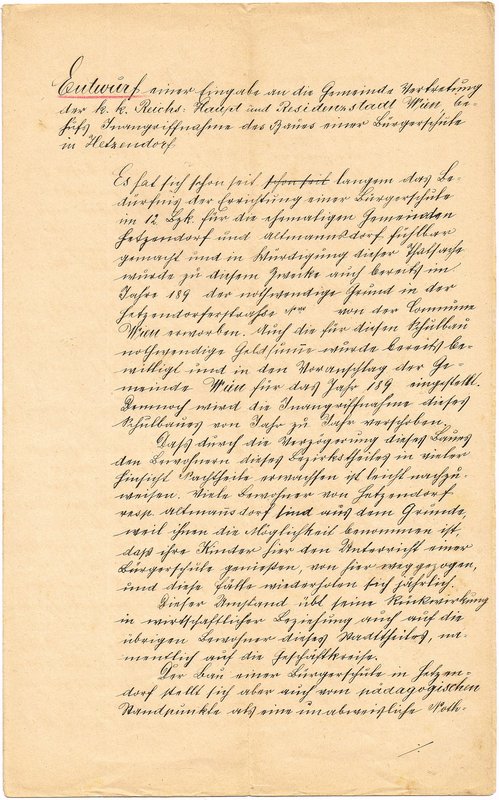 Entwurf einer Eingabe an die Gemeinde Vertretung
der k. k. Reichs- Haupt und Residenzstadt Wien, be-
hufs Inangriffnahme des Baues einer Bürgerschule
in Hetzendorf.
Es hat sich schon seit schon seit langem das Be-
dürfnis der Errichtung einer Bürgerschule
im 12. Bzk. für die ehemaligen Gemeinden
Hetzendorf und Altmannsdorf fühlbar
gemacht und in Würdigung dieser Thatsache
wurde zu diesem Zwecke auch bereits im
Jahre 189 der nothwendige Grund in der
Hetzendorferstrahse von der Commune
Wien erworben. Auch die für diesen Schulbau
nothwendige Geldsum̅e wurde bereits be-
willigt und in den Voranschlag der Ge-
meinde Wien für das Jahr 189 eingestellt.
Dennoch wird die Inangriffnahme dieses
Schulbaues von Jahr zu Jahr verschoben.
Dass durch die Verzögerung dieses Baues
den Bewohnern dieses Bezirkstheiles in vieler
Hinsicht Nachtheile erwachsen ist leicht nachzu-
weisen. Viele Bewohner von Hetzendorf
resp. Altmannsdorf sind aus dem Grunde,
weil ihnen die Möglichkeit benommen ist,
daß ihre Kinder hier den Unterricht einer
Bürgerschule genießen, von hier weggezogen,
und diese Fälle wiederholen sich jährlich.
Dieser Umstand übt seine Rückwirkung
in wirthschaftlicher Beziehung auch auf die
übrigen Bewohner dieses Stadttheiles, na-
mentlich auf die Geschäftskreise.
Der Bau einer Bürgerschule in Hetzen-
dorf stellt sich aber auch vom pädagogischen
Standpunkte als eine unabweisliche Noth-
./.